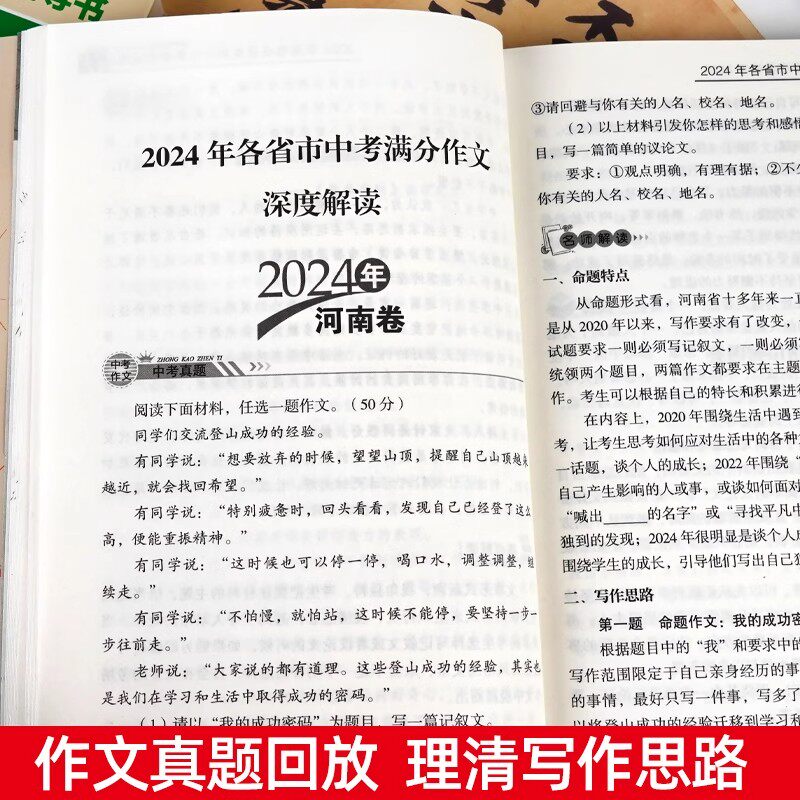 2024 年各省市中考满分作文
深度解读
2024年
河南卷
ZHONG KAO ZHEN TI
中考
作文
中考真题
阅读下面材料，任选一题作文。（50 分）
同学们交流登山成功的经验。
有同学说：“想要放弃的时候，望望山顶，提醒自己山顶越来
越近，就会找回希望。”
有同学说：“特别疲惫时，回头看看，发现自己已经登了这么
高，便能重振精神。”
有同学说：“这时候也可以停一停，喝口水，调整调整，继
续走。”
有同学说：“不怕慢，就怕站，这时候不能停，要坚持一步一
步往前走。”
老师说：“大家说的都有道理。这些登山成功的经验，其实也
是我们在学习和生活中取得成功的密码。”
（1）请以“我的成功密码”为题目，写一篇记叙文。
2024 年各省市中
③请回避与你有关的人名、校名、地名。
（2）以上材料引发你怎样的思考和感情
目，写一篇简单的议论文。
要求：①观点明确，有理有据；②不少
你有关的人名、校名、地名。
名师解读
一、命题特点
从命题形式看，河南省十多年来一直
是从 2020 年以来，写作要求有了改变，
试题要求一则必须写记叙文，一则必须写
统领两个题目，两篇作文都要求在主题
作。考生可以根据自己的特长和积累进行
在内容上，2020 年围绕生活中遇到
考，让考生思考如何应对生活中的各种
一话题，谈个人的成长；2022 年围绕“
自己产生影响的人或事，或谈如何面对
“喊出____的名字”或“寻找平凡中
独到的发现；2024 年很明显是谈个人成
围绕学生的成长，引导他们写出自己独
二、写作思路
第一题　命题作文：我的成功密
根据题目中的“我”和要求中的
写作范围限定于自己亲身经历的事
的事情，最好只写一件事，写多了
以将登山成功的经验迁移到学习和
作文真题回放 理清写作思路